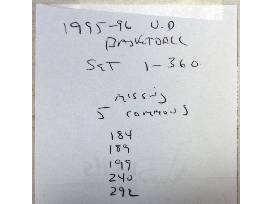 1995-96 U.D
BASKETBALL
SET 1-360
MISSING
5 COMMONS
184
189
199
240
292